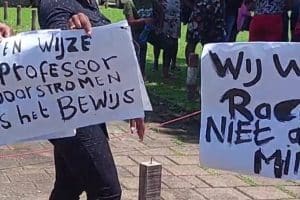 EN WIJZE
PROFESSOR
DOORSTROMEN
S HET BEWIJS
WIJ W
RAC
NIET
MI